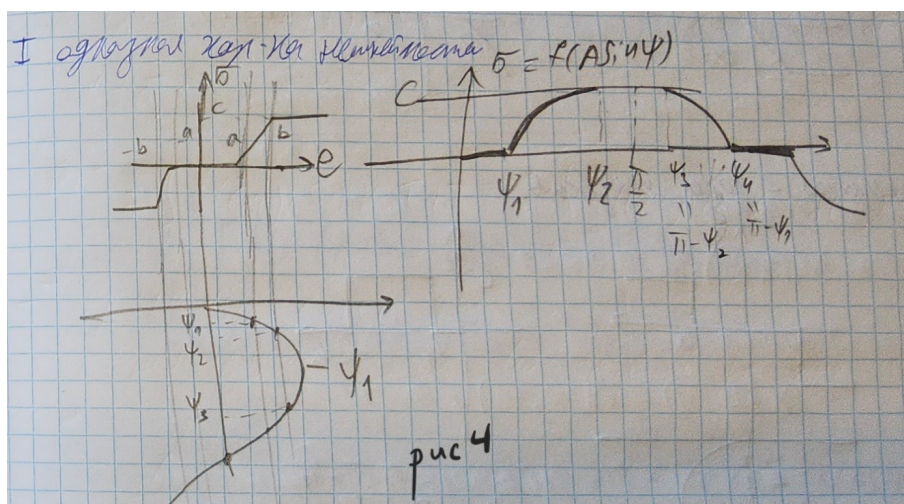 I однозная хар-ка нелинейности σ = f(A sin ψ)
σ
c
-b -a a b e
C
ψ1 ψ2 π/2 ψ3 ψ4
" "
π-ψ2 π-ψ1
ψ1
ψ2
ψ1
ψ3
рис 4